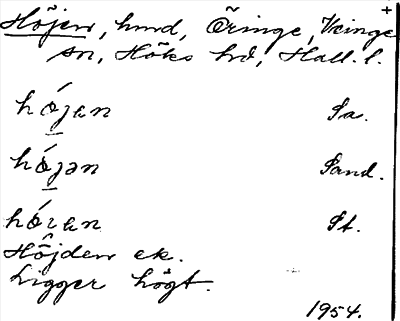 Höjen, hmd, Öringe, Veinge +
sn, Höks hd, Hall. l.
hǿjan Pa.
hǿjən Pand.
hǿran Pt.
Höjden ek.
Ligger högt.
1954.